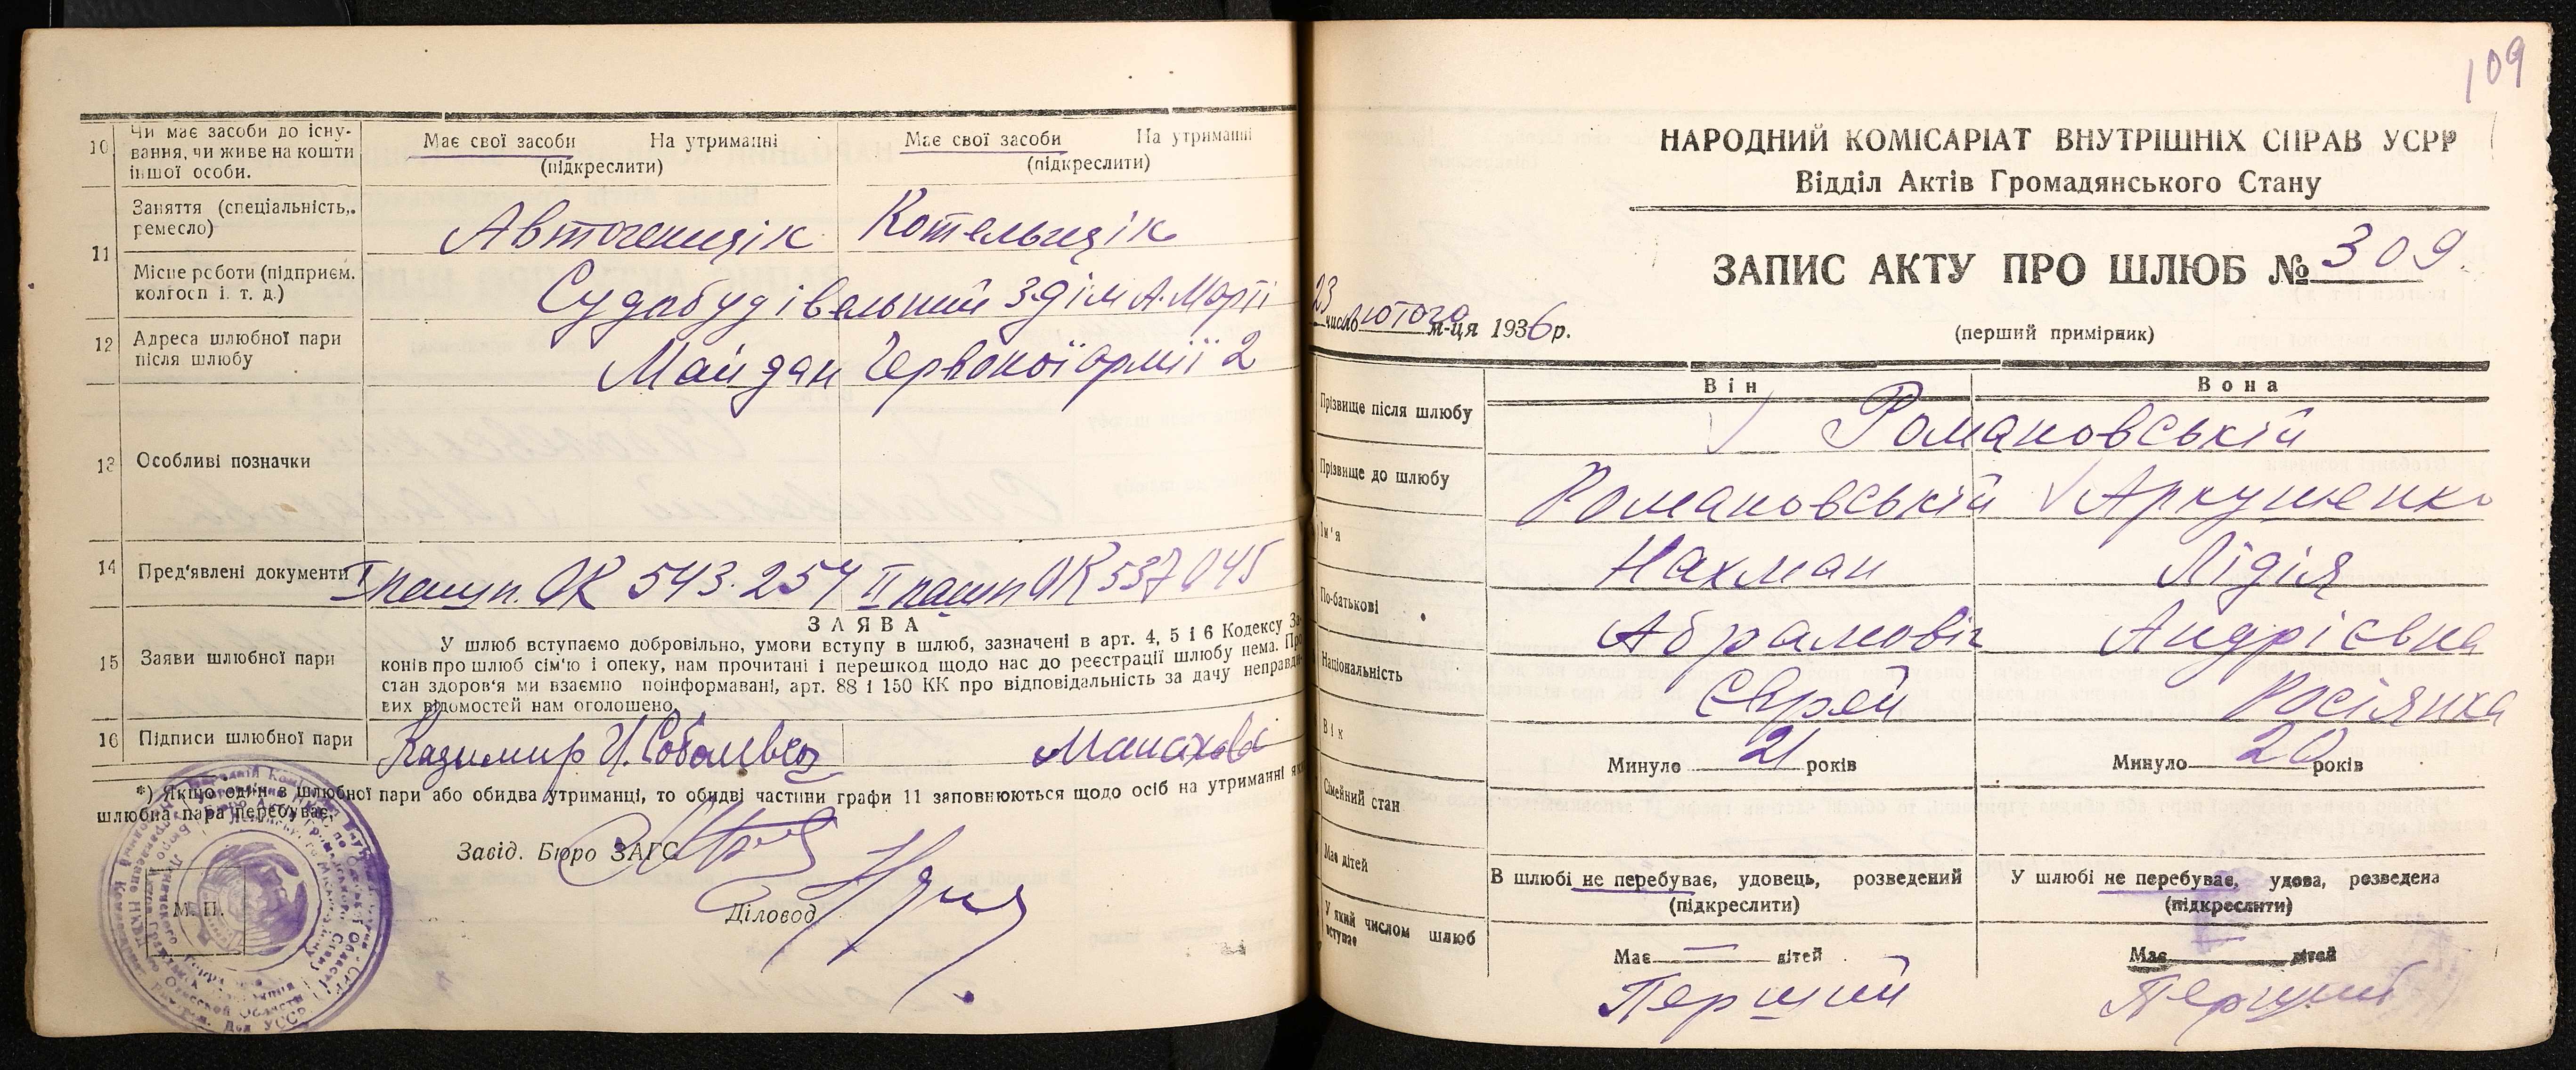 10 Чи має засоби до існу-
вання, чи живе на кошти
іншої особи.
Має свої засоби На утриманні
(підкреслити)
Має свої засоби На утриманні
(підкреслити)
11 Заняття (спеціальність,
ремесло)
Автогенщік Котельщік
Місце роботи (підприєм.
колгосп і. т. д.)
Судобудівельний з-д ім А. Марті
12 Адреса шлюбної пари
після шлюбу
Майдан Червоної армії 2
13 Особливі позначки
14 Пред'явлені документи
I пашп. ОК 543.254 II пашп ОК 537045
ЗАЯВА
15 Заяви шлюбної пари
У шлюб вступаємо добровільно, умови вступу в шлюб, зазначені в арт. 4, 5 і 6 Кодексу За-
конів про шлюб сім'ю і опеку, нам прочитані і перешкод щодо нас до реєстрації шлюбу нема. Про
стан здоров'я ми взаємно поінформавані, арт. 88 і 150 КК про відповідальність за дачу неправди-
вих відомостей нам оголошено
16 Підписи шлюбної пари
Казимир
*) Якщо один в шлюбної пари або обидва утриманці, то обидві частини графи 11 заповнюються щодо осіб на утриманні
шлюбна пара перебуває.
Завід. Бюро ЗАГС
М. П.
Діловод
109
НАРОДНИЙ КОМІСАРІАТ ВНУТРІШНІХ СПРАВ УСРР
Відділ Актів Громадянського Стану
ЗАПИС АКТУ ПРО ШЛЮБ № 309
23 число лютого м-ця 1936 р.
(перший примірник)
Він Вона
Прізвище після шлюбу
Романовській
Прізвище до шлюбу
Романовській Аркушенко
Ім'я
Нахман Лідія
По-батькові
Абрамовіч Андрієвна
Національність
Єврей Росіянка
Вік
Минуло 21 років Минуло 20 років
Сімейний стан
В шлюбі не перебуває, удовець, розведений
(підкреслити)
У шлюбі не перебуває, удова, розведена
(підкреслити)
Має дітей
Має дітей Має дітей
У який числом шлюб
вступає
Перший Перший